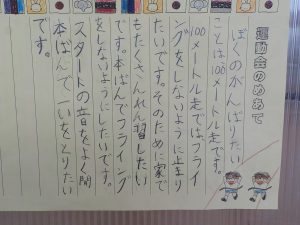 運動会のめあて
ぼくのがんばりたい
ことは100メートル走です。
100メートル走ではフライ
ングをしないように止まり
たいです。そのために家で
もたくさんれん習したい
です。本ばんでフライング
をしないようにしたいです。
スタートの音をよく聞
本ばんで一いをとりたい
です。